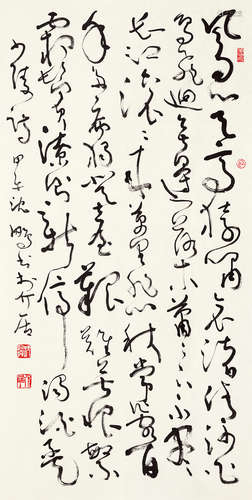 風急天高猿嘯哀渚清沙白
鳥飛迴無邊落木蕭〻下不盡
長江滾〻來萬里悲秋常作客百
年多病獨登臺艱難苦恨繁
霜鬢潦倒新停濁酒杯
少陵詩 甲午沈鵬書於介居